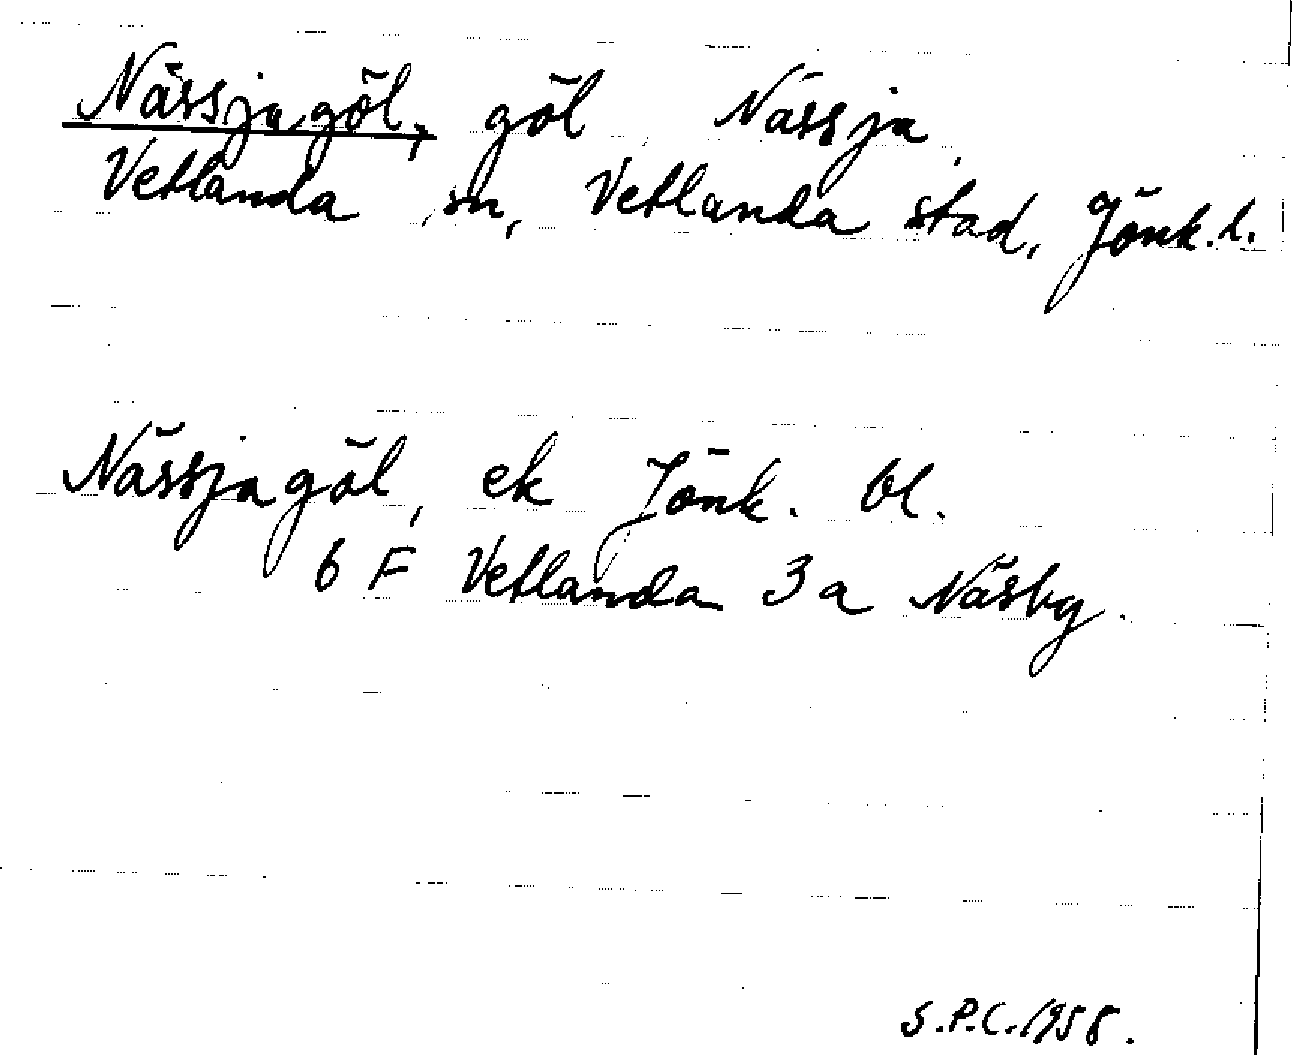 Nässjagöl, göl Nässja
Vetlanda sn, Vetlanda stad, Jönk. l.
Nässjagöl, ek Jönk. bl.
6 F Vetlanda 3 a Näsby.
S.P.C. 1958.